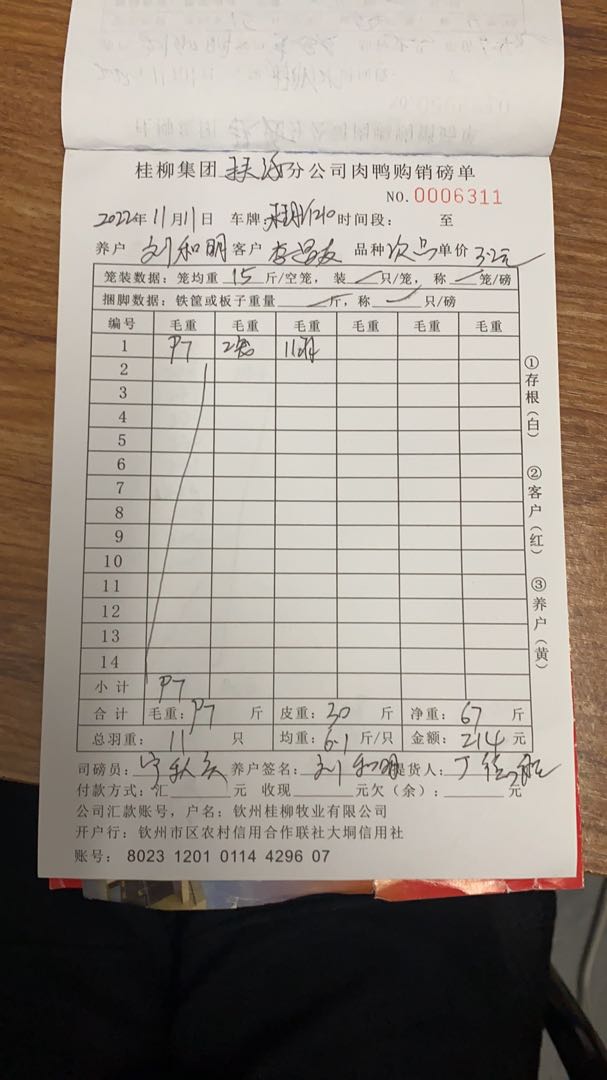 桂柳集团 扶绥 分公司肉鸭购销磅单
NO.0006311
2022年 11月11日 车牌: 时间段: 至
养户 刘和明 客户 李昌友 品种 次鸟 单价 3.2元
笼装数据: 笼均重 15 斤/空笼, 装 只/笼, 称 笼/磅
捆脚数据: 铁筐或板子重量 斤, 称 只/磅
编号 毛重 毛重 毛重 毛重 毛重 毛重
1 97 2笼 11羽
2
3
4
5
6
7
8
9
10
11
12
13
14
小计 97
合计 毛重: 97 斤 皮重: 30 斤 净重: 67 斤
总羽重: 11 只 均重: 6.1 斤/只 金额: 214 元
司磅员: 养户签名: 刘和明 提货人:
付款方式: 汇 元 收现 元欠(余): 元
公司汇款账号, 户名: 钦州桂柳牧业有限公司
开户行: 钦州市区农村信用合作联社大垌信用社
账号: 8023 1201 0114 4296 07
①存根(白)
②客户(红)
③养户(黄)